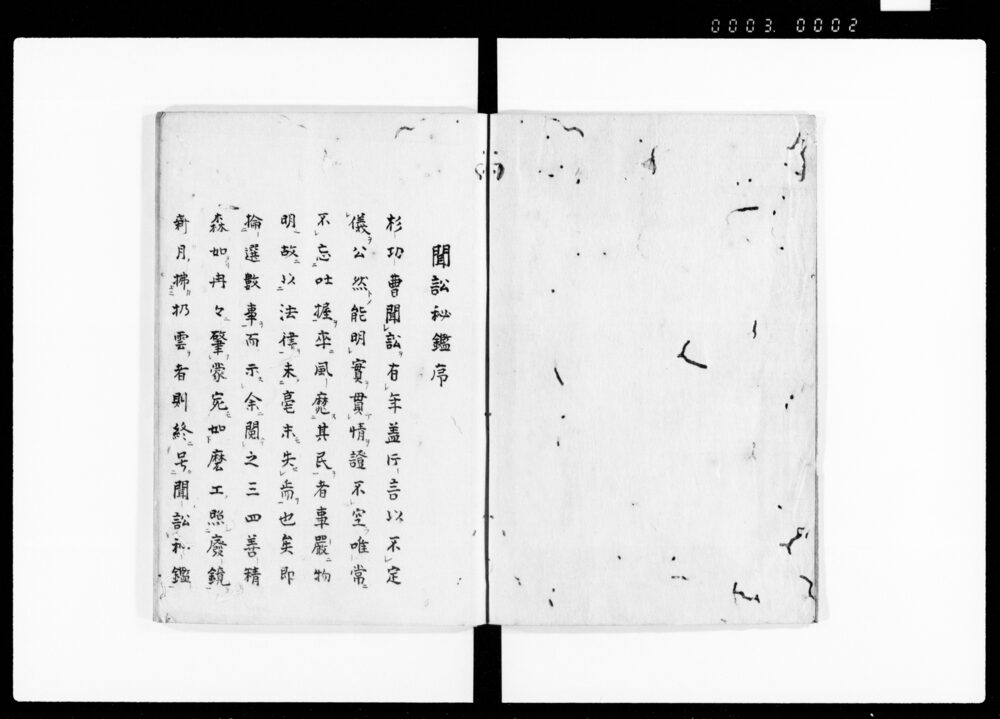 0003. 0002
聞訟秘鑑序
杉功曹聞訟有年盖片言以不定
儀公然能明實貫情證不空唯常
不忘吐握卒風靡其民者事嚴物
明故以法律未毫末失焉也矣即
掄選數事而示余閲之三四善精
森如冉々肇蒙宛如磨工照廢鏡
新月拂扔雲者則終号聞訟秘鑑